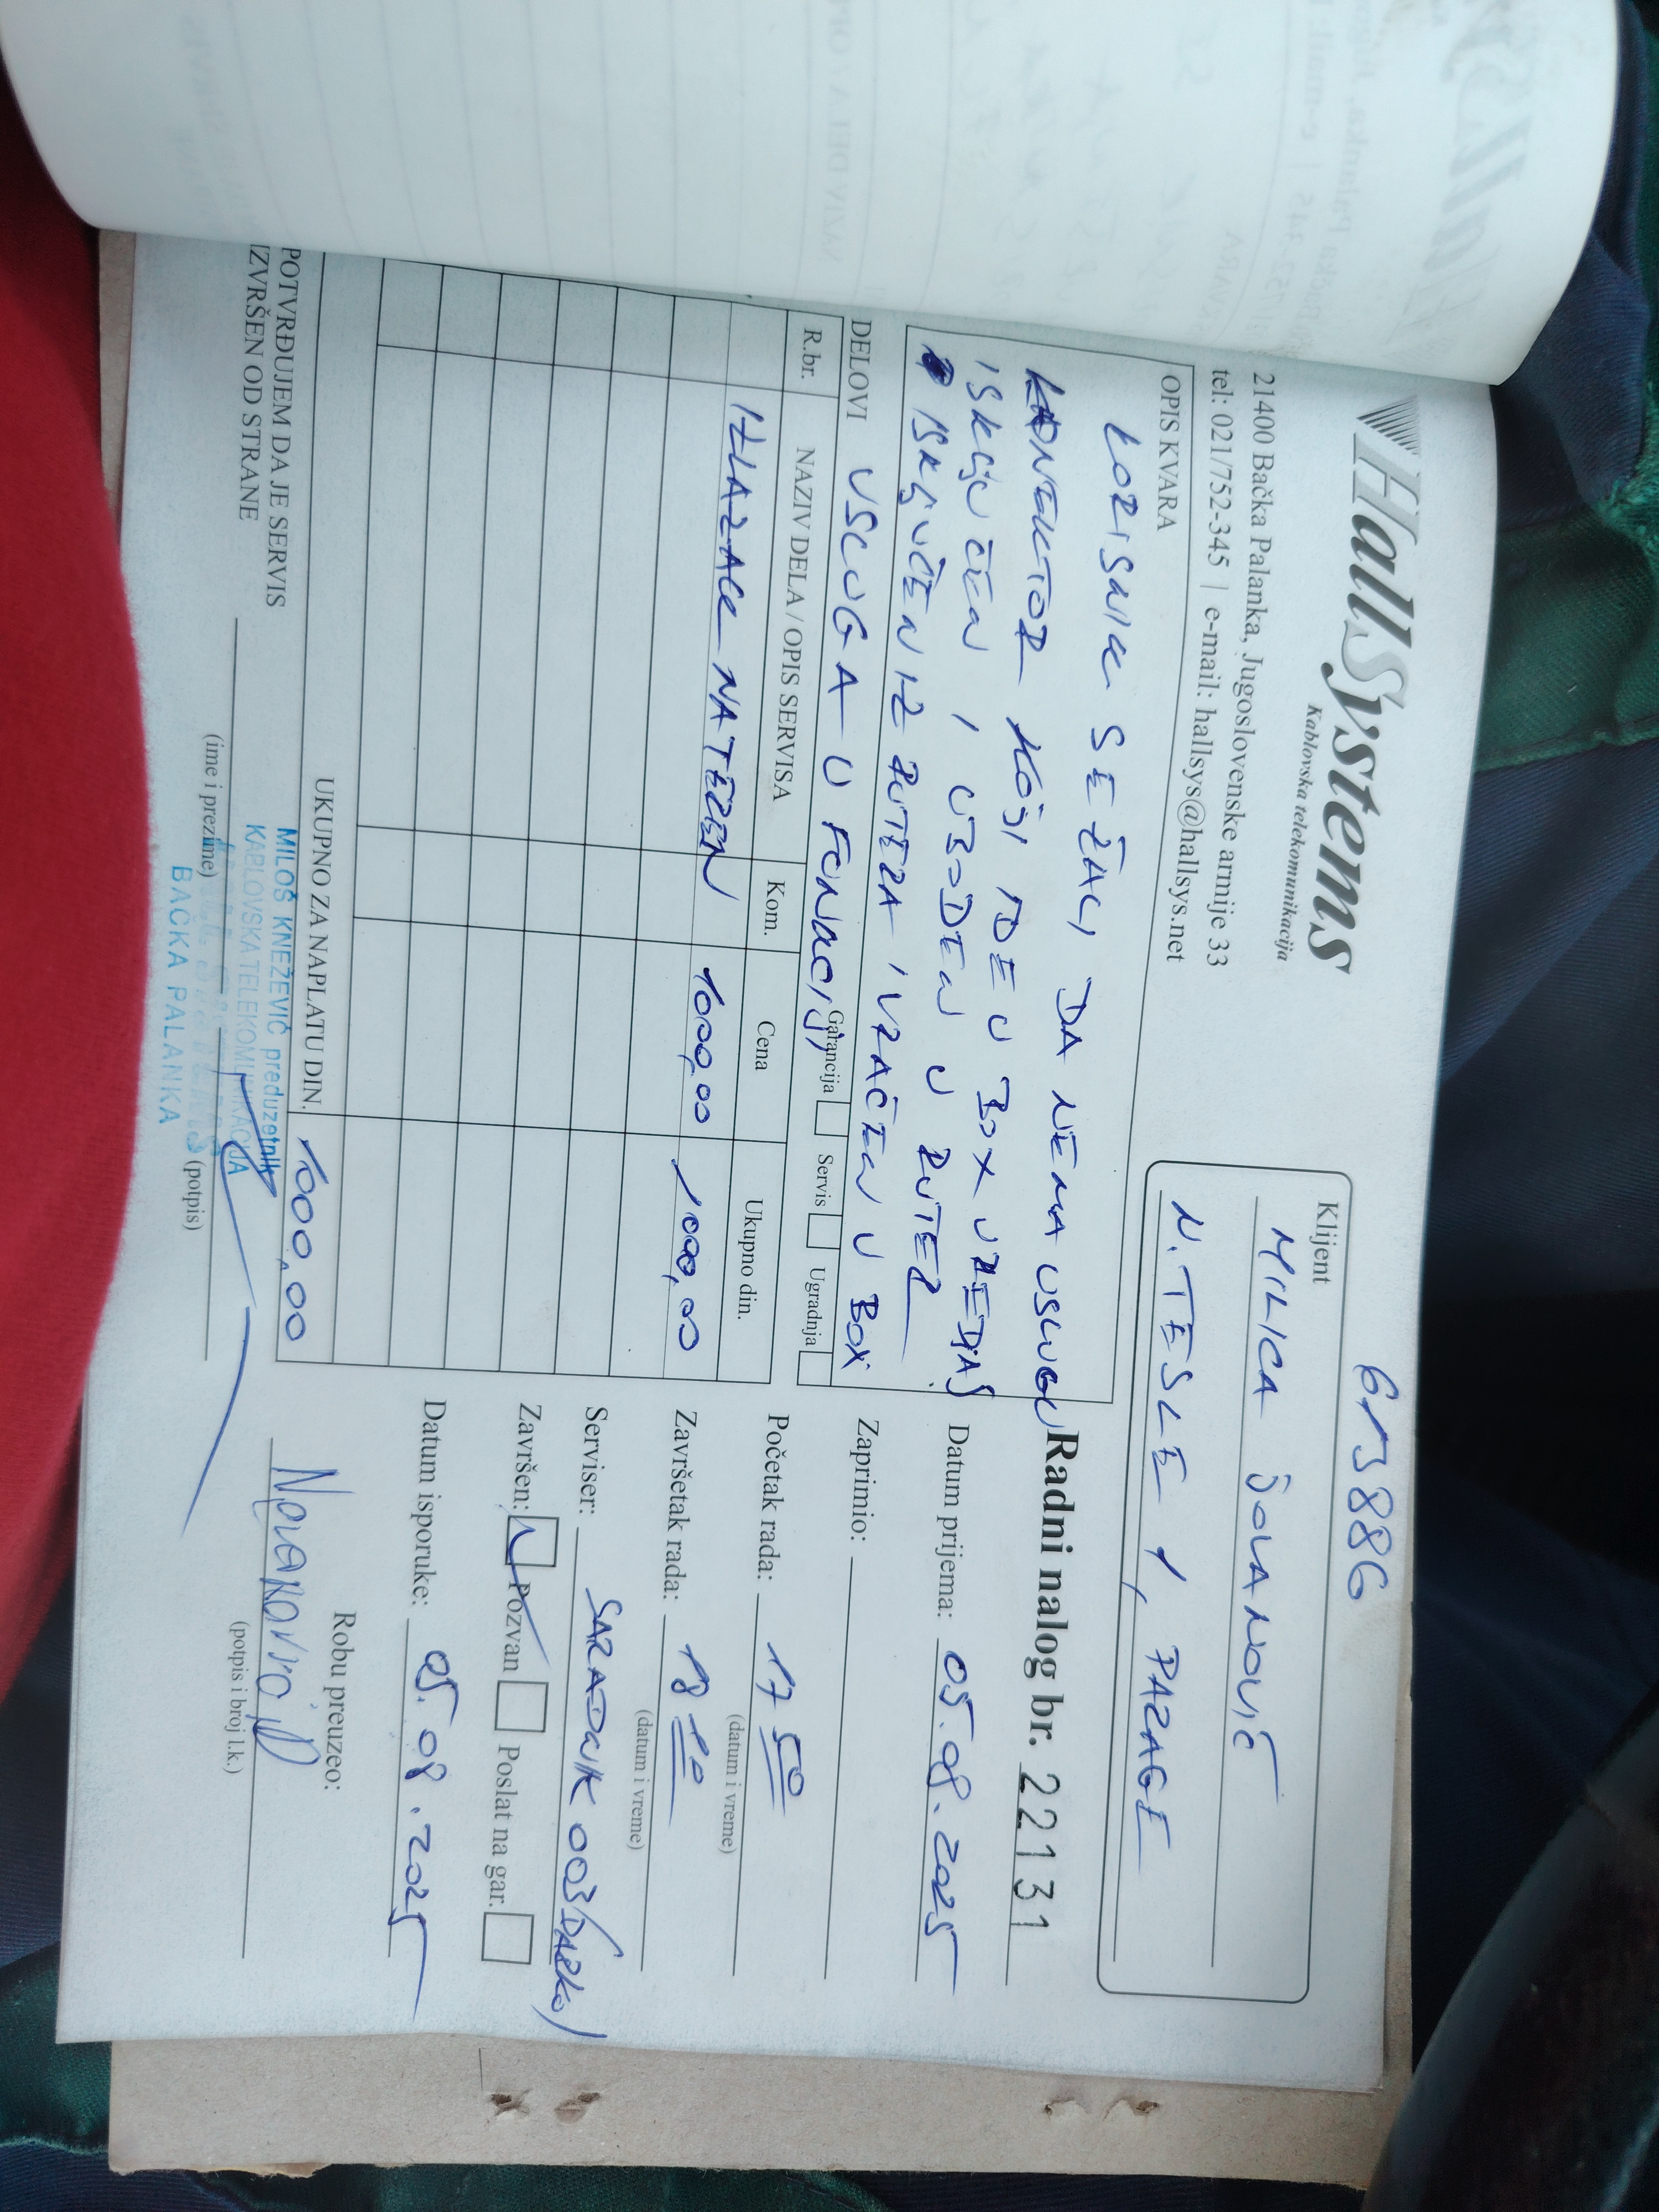 HallSystems
Kablovska telekomunikacija
21400 Bačka Palanka, Jugoslovenske armije 33
tel: 021/752-345 | e-mail: hallsys@hallsys.net
613886
Klijent
MILICA JOVANOVIĆ
N. TESLE 1, PARAGE
OPIS KVARA
KORISNIK SE ŽALI DA NEMA USLUGU
KONEKTOR KOJI IDE U BOX UREĐAJ
ISKLJUČEN I UBODEN U RUTER
ISKLJUČEN IZ RUTERA I VRAĆEN U BOX
USLUGA U FUNKCIJI
DELOVI
Garancija Servis Ugradnja
R.br. NAZIV DELA / OPIS SERVISA Kom. Cena Ukupno din.
IZLAZAK NA TEREN 1000,00 1000,00
UKUPNO ZA NAPLATU DIN. 1000,00
POTVRĐUJEM DA JE SERVIS
IZVRŠEN OD STRANE
MILOŠ KNEŽEVIĆ preduzetnik
KABLOVSKA TELEKOMUNIKACIJA
BAČKA PALANKA
(ime i prezime) (potpis)
Radni nalog br. 22131
Datum prijema: 05.08.2025
Zaprimio:
Početak rada: 17 50
(datum i vreme)
Završetak rada: 18 10
(datum i vreme)
Serviser: SARADNIK 003/DARKO/
Završen: Pozvan Poslat na gar.
Datum isporuke: 05.08.2025
Robu preuzeo:
(potpis i broj l.k.)